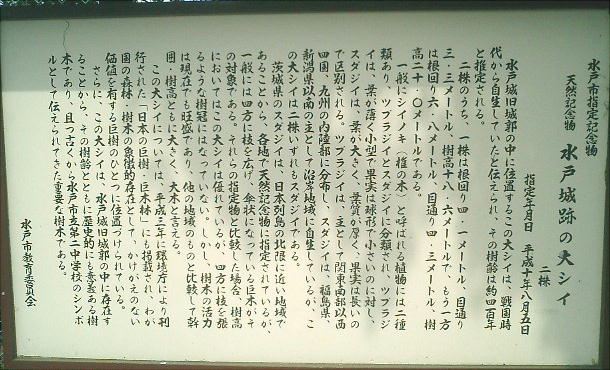 水戸市指定記念物
天然記念物　水戸城跡の大シイ　二株
指定年月日　平成十年八月五日
水戸城旧城郭の中に位置するこの大シイは、戦国時
代から自生していたと伝えられ、その樹齢は約四百年
と推定される。
二株のうち、一株は根回り四・一メートル、目通り
三・三メートル、樹高十八・六メートルで、もう一方
は根回り六・八メートル、目通り四・三メートル、樹
高二十・〇メートルである。
一般にシイノキ（椎の木）と呼ばれる植物には二種
類あり、ツブラジイとスダジイに分類され、ツブラジ
イは、葉が薄く小型で果実は球形で小さいのに対し、
スダジイは、葉が大きく、葉質が厚く、果実は長いの
で区別される。ツブラジイは、主として関東南部以西
四国、九州の内陸部に分布し、スダジイは、福島県、
新潟県以南の主として沿岸地域に自生しているが、こ
の大シイは二株いずれもスダジイである。
茨城県のスダジイは、日本列島の北限に近い地域で
あることから、各地で天然記念物に指定されているが、
一般には四方に枝を広げ、傘状になっている巨木がそ
の対象である。それらの指定物と比較した場合、樹高
においてはこの大シイは優れているが、四方に枝を張
るような樹冠にはなっていない。しかし、樹木の活力
は現在でも旺盛であり、他の地域のものと比較して幹
囲・樹高ともに大きく、大木と言える。
この大シイについては、平成三年に環境庁により刊
行された「日本の巨樹・巨木林」にも掲載され、わが
国の森林・樹木の象徴的存在として、かけがえのない
価値を有する巨樹のひとつに位置づけられている。
さらに、この大シイは、水戸城旧城郭の中に存在す
ることから、その樹齢とともに歴史的にも意義ある樹
木であり、且つ古くから水戸市立第二中学校のシンボ
ルとして伝えられてきた重要な樹木である。
水戸市教育委員会